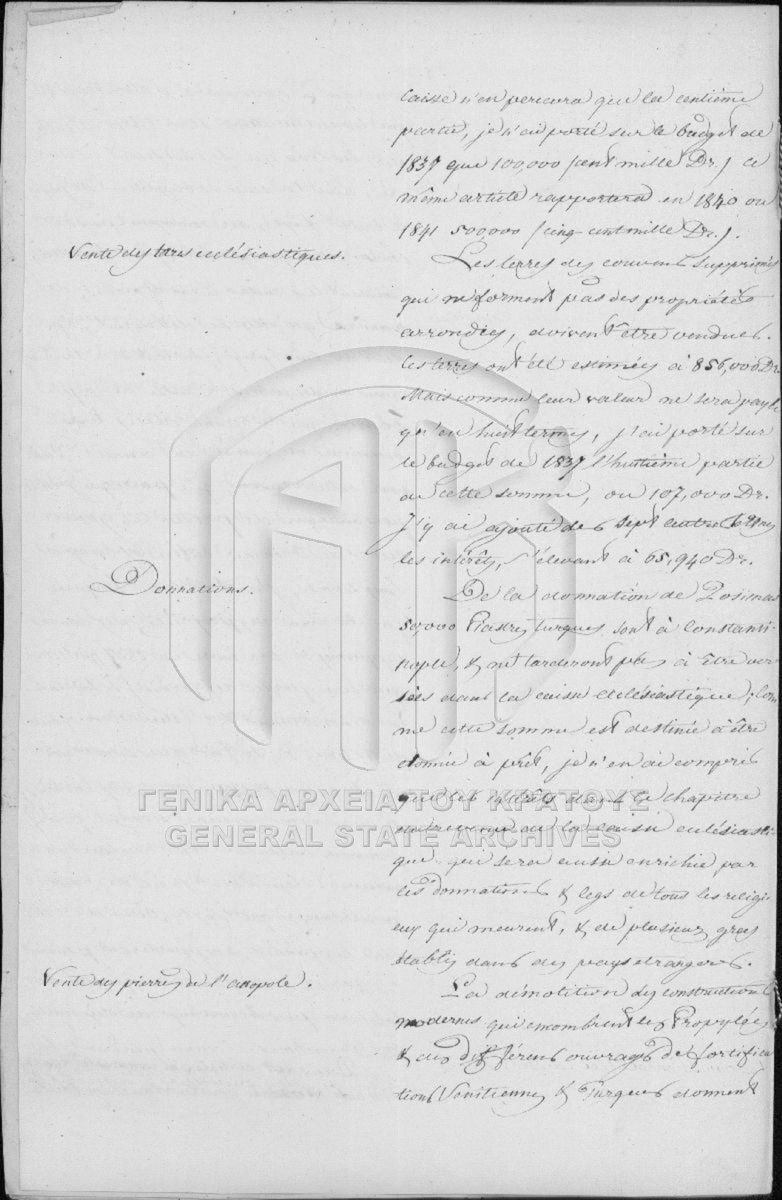 caisse n'en percevra que la centième
partie, je n'ai porté sur le budget de
1837 que 100,000 (cent mille Dr.) ce
même article rapportera en 1840 ou
1841 500000 (cinq cent mille Dr.).
Vente des terres ecclésiastiques.
Les terres des couvens supprimés
qui ne forment pas des propriétés
arrondies, doivent être vendues.
Ces terres ont été estimées à 856,000 Dr.
Mais comme leur valeur ne sera payée
qu'en huit termes, j'ai porté sur
le budget de 1837 l'huitième partie
de cette somme, ou 107,000 Dr.
J'y ai ajouté des sept autres
les intérêts, s'élevant à 65,940 Dr.
Donnations.
De la donnation de Posimas
50,000 Piastres turques sont à Constanti-
nople, & ne tarderont pas à être ver-
sées dans la caisse ecclésiastique; Com-
me cette somme est destinée à être
donnée à prêt, je n'en ai compris
que les intérêts dans le chapitre
du revenu de la caisse ecclésiasti-
que qui sera aussi enrichie par
les donnations & legs de tous les religi-
eux qui meurent, & de plusieurs grecs
établis dans des pays étrangers.
Vente des pierres de l'acropole.
La démolition des constructions
modernes qui encombrent les Propylées,
& des différens ouvrages de fortifica-
tions Vénitiennes & Turques donnent
ΓΕΝΙΚΑ ΑΡΧΕΙΑ ΤΟΥ ΚΡΑΤΟΥΣ
GENERAL STATE ARCHIVES